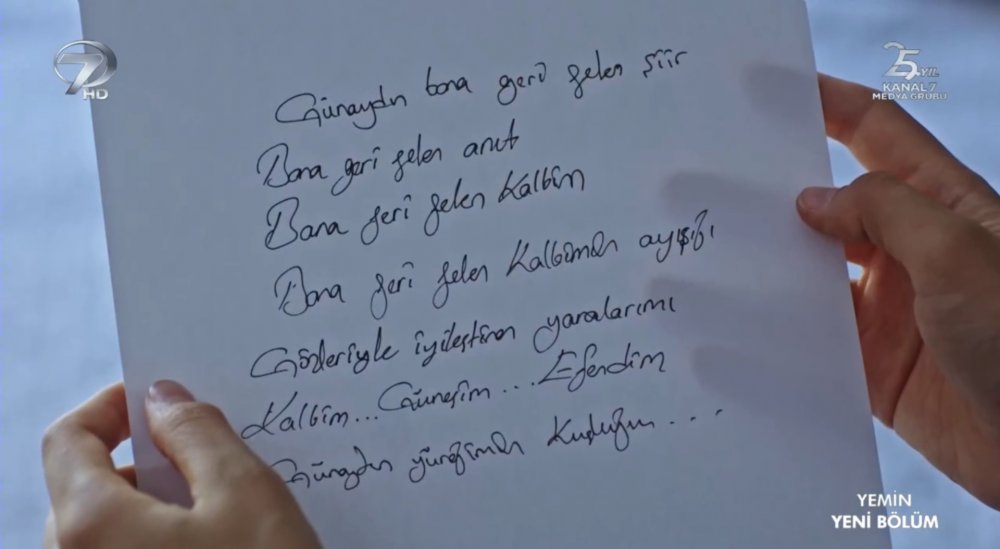 7 HD
25. YIL
KANAL 7
MEDYA GRUBU
Günaydın bana geri gelen şiir
Bana geri gelen
Bana geri gelen Kalbim
Bana geri gelen Kalbimin ayışığı
Gözleriyle iyileştiren yaralarımı
Kalbim... Güneşim... Efendim
Günaydın yüreğimin
YEMİN
YENİ BÖLÜM